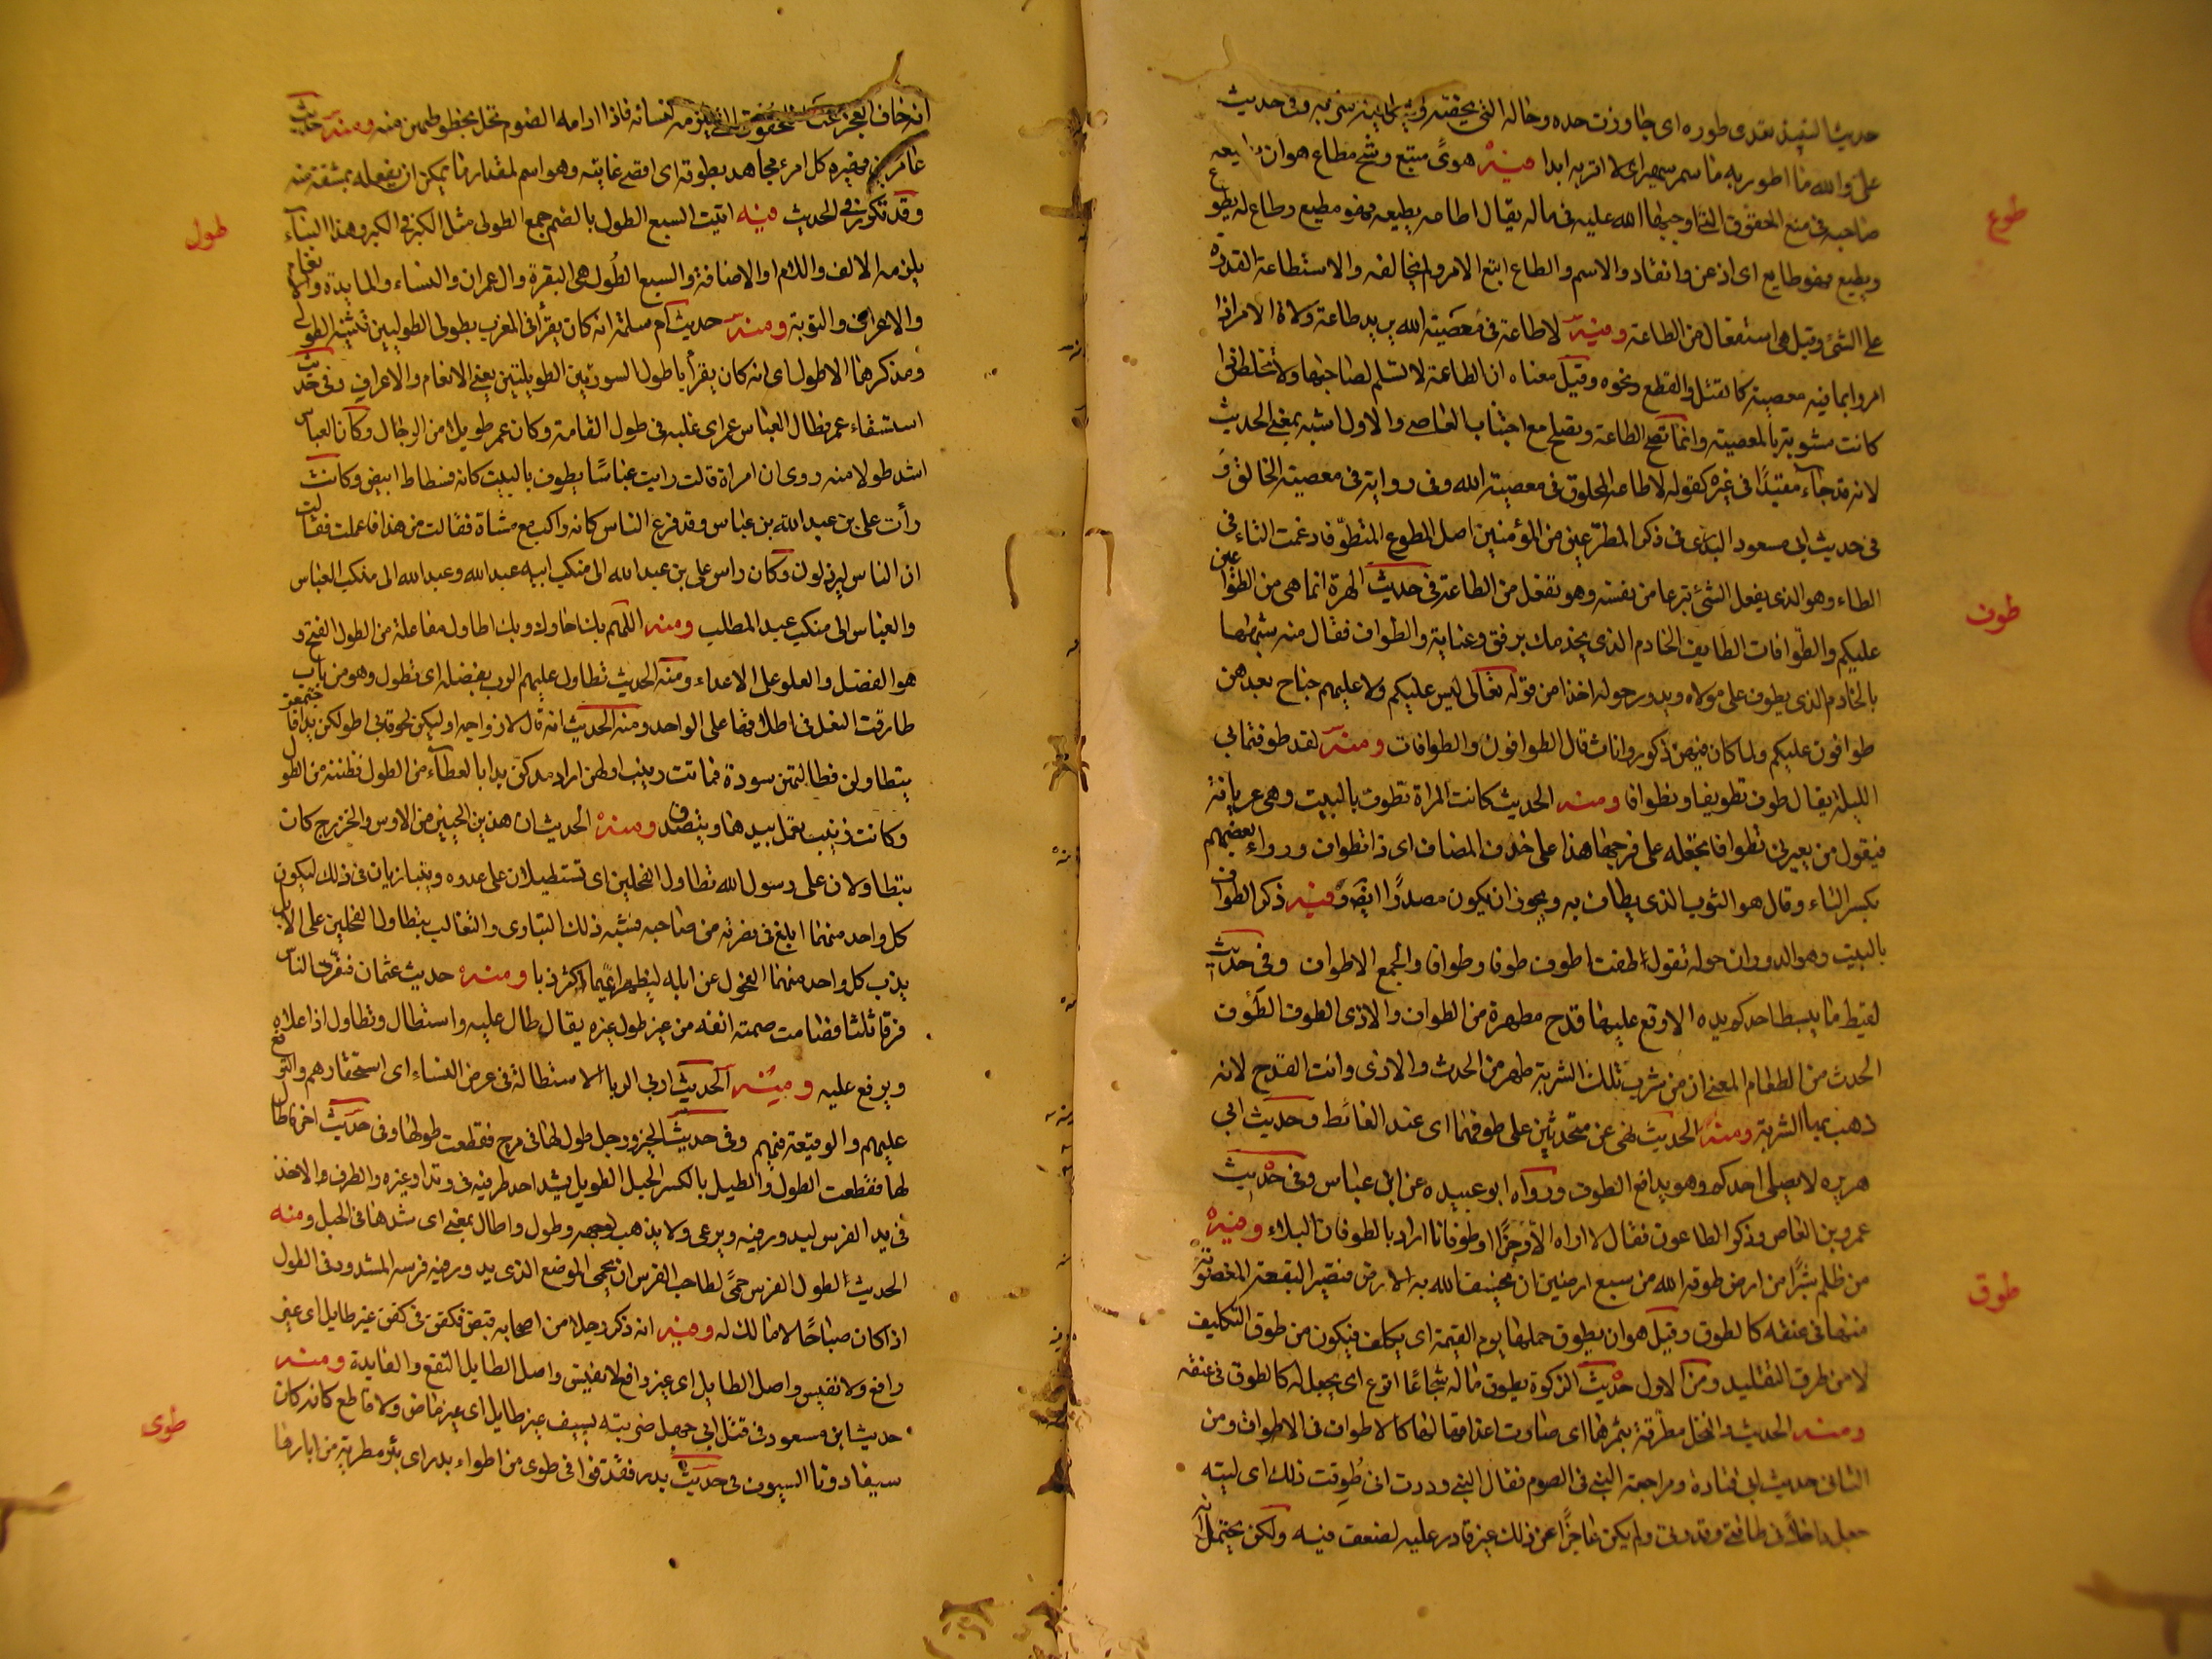 حديث النبيذ تعدى طوره اى جاوزت حده وحاله الذى يخصه ويحل فيه شربه وفى حديث
على والله ما اطور به ما سمر سمير اى لا اقربه ابدا فيه هوًى متبع وشح مطاع هو ان يطيعه
طوع
صاحبه فى منع الحقوق التى اوجبها الله عليه فى ماله يقال اطاعه يطيعه فهو مطيع وطاع له يطوع
ويطيع فهو طايع اى اذعن وانقاد والاسم والطاع اتبع الامر ولم يخالفه والاستطاعة القدرة
على الشئ وقيل هى استفعال من الطاعة ومنه لا طاعة فى معصية الله يريد طاعة ولاة الامر اذا
امروا بما فيه معصية كالقتل والقطع ونحوه وقيل معناه ان الطاعة لا تسلم لصاحبها ولا تخلص اذا
كانت مشوبة بالمعصية وانما تصح الطاعة وتصلح مع اجتناب المعاصى والاول اشبه بمعنى الحديث
لانه قد جاء مقيدًا فى غيره كقوله لا طاعة لمخلوق فى معصية الله وفى رواية فى معصية الخالق و
فى حديث ابى مسعود البدرى فى ذكر المطوعين من المؤمنين اصل المطوع المتطوع فادغمت التاء فى
الطاء وهو الذى يفعل الشئ تبرعا من نفسه وهو تفعل من الطاعة فى حديث الهرة انما هى من الطوافين
طوف
عليكم والطوافات الطايف الخادم الذى يخدمك برفق وعناية والطواف فعال منه شبهها
بالخادم الذى يطوف على مولاه ويدور حوله اخذا من قوله تعالى ليس عليكم ولا عليهم جناح بعدهن
طوافون عليكم ولما كان فيهن ذكور واناث قال الطوافون والطوافات ومنه لقد طوفتما بى
الليلة يقال طوف تطويفا وتطوافا ومنه الحديث كانت المراة تطوف بالبيت وهى عريانة
فيقول من يعيرنى تطوافا تجعله على فرجها هذا على حذف المضاف اى ذا تطواف ورواه بعضهم
بكسر التاء وقال هو الثوب الذى يطاف به ويجوز ان يكون مصدرًا ايضًا وفيه ذكر الطواف
بالبيت وهو الدوران حوله تقول طفت اطوف طوفا وطوافا والجمع الاطواف وفى حديث
لقيط ما يبسط احدكم يده الا وقع عليها قدح مطهرة من الطواف والاذى الطوف الطوف
الحدث من الطعام المعنى ان من شرب تلك الشربة طهر من الحدث والاذى وانت القدح لانه
ذهب بها الشربة ومنه الحديث نهى عن متحدثين على طوفهما اى عند الغائط وحديث ابى
هريره لا يصلى احدكم وهو يدافع الطوف ورواه ابو عبيده عن ابن عباس وفى حديث
عمرو بن العاص وذكر الطاعون فقال لا اراه الا رجزًا او طوفانا اراد بالطوفان البلاء وفيه
من ظلم شبرًا من ارض طوقه الله من سبع ارضين ان يخسف الله به الارض فتصير البقعة المغصوبة
طوق
منها فى عنقه كالطوق وقيل هو ان يطوق حملها يوم القيمة اى يكلف فيكون من طوق التكليف
لا من طوق التقليد ومن الاول حديث الزكوة يطوق ماله شجاعًا اقرع اى يجعل له كالطوق فى عنقه
ومنه الحديث والنخل مطوقة بثمرها اى صارت اعذاقها لها كالاطواق فى الاطواق ومن
الثانى حديث ابى قتادة ومراجعة النبى فى الصوم فقال النبى وددت انى طُوقت ذلك اى ليته
جعل داخلًا فى طاقتى وقدرتى ولم يكن عاجزًا عن ذلك غير قادر عليه لضعف فيه ولكن يحتمل انه
انه خاف العجز عنه للحقوق التى تلزمه لنسائه فاذا ادامه الصوم تخل بحظوظهن منه ومنه حديث
عامر بن فهيره كل امرء مجاهد بطوقه اى اقصى غايته وهو اسم لمقدار ما يمكن ان يفعله بمشقة منه
وقد تكرر فى الحديث فيه اوتيت السبع الطول بالضم جمع الطولى مثل الكبر فى الكبرى وهذا البناء
طول
يلزمه الالف واللام او الاضافة والسبع الطُول هى البقرة وال عمران والنساء والمايدة والانعام
والاعراف والتوبة ومنه حديث ام سلمة انه كان يقرأ فى المغرب بطولى الطوليين تثنية الطولى
ومذكرها الاطول اى انه كان يقرأ باطول السورتين الطويلتين يعنى الانعام والاعراف وفى حديث
استسقاء عمر فطال العباس عمر اى غلبه فى طول القامة وكان عمر طويلا من الرجال وكان العباس
اشد طولا منه روى ان امراة قالت رايت عباسًا يطوف بالبيت كانه فسطاط ابيض وكانت
رأت على بن عبد الله بن عباس وقد فرع الناس كانه راكب مع مشاة فقالت من هذا فاعلمت فقالت
ان الناس ليرذلون وكان راس على بن عبد الله الى منكب ابيه عبد الله وعبد الله الى منكب العباس
والعباس الى منكب عبد المطلب ومنه اللهم بك احاول وبك اطاول مفاعلة من الطول الفتح و
هو الفضل والعلو على الاعداء ومنه الحديث تطاول عليهم الرب بفضله اى تطول وهو من باب
طارقت النعل فى اطلاقها على الواحد ومنه الحديث انه قال لازواجه اولكن لحوقا بى اطولكن يدا فاجتمعن
يتطاولن فطالتهن سودة فماتت زينب اولهن اراد امدكن يدا بالعطاء من الطول فظننه من الطول
وكانت زينب تعمل بيدها وتتصدق ومنه الحديث ان هذين الحيين من الاوس والخزرج كانا
يتطاولان على رسول الله تطاول الفحلين اى تستطيلان على عدوه ويتباريان فى ذلك ليكون
كل واحد منهما ابلغ فى نصرته من صاحبه فشبه ذلك التبارى والتغالب بتطاول الفحلين على الابل
يذب كل واحد منهما الفحول عن ابله ليظهر ايهما اكثر ذبا ومنه حديث عثمان فتفرق الناس
فرقا ثلثا فصامت صمته انفذ من غير طول غيره يقال طال عليه واستطال وتطاول اذا علاه
وترفع عليه ومنه الحديث اربى الربا الاستطالة فى عرض النساء اى استحقارهم والترفع
عليهم والوقيعة فيهم وفى حديث الخيل ورجل طول لها فى مرج فقطعت طولها وفى حديث اخر فاطال
لها فقطعت الطول والطيل بالكسر الحبل الطويل يشد احد طرفيه فى وتد او غيره والطرف الاخر
فى يد الفرس ليدور فيه ويرعى ولا يذهب لوجهه وطول واطال بمعنى اى شدها فى الحبل ومنه
الحديث لطول الفرس حمًى لصاحب الفرس ان يحمى الموضع الذى يدور فيه فرسه المشدود فى الطول
اذا كان مباحًا لا مالك له وفيه انه ذكر رجلا من اصحابه قبض فكفن فى كفن غير طايل اى غير
رافع ولا نفيس واصل الطايل اى غير رافع لا نفيس واصل الطايل النفع والفايدة ومنه
حديث ابن مسعود فى قتل ابى جهل ضربته بسيف غير طايل اى غير ماض ولا قاطع كانه كان
سيفا دونا السيوف فى حديث بدر فقذفوا فى طوى من اطواء بدر اى بئر مطوية من ابارها
طوى